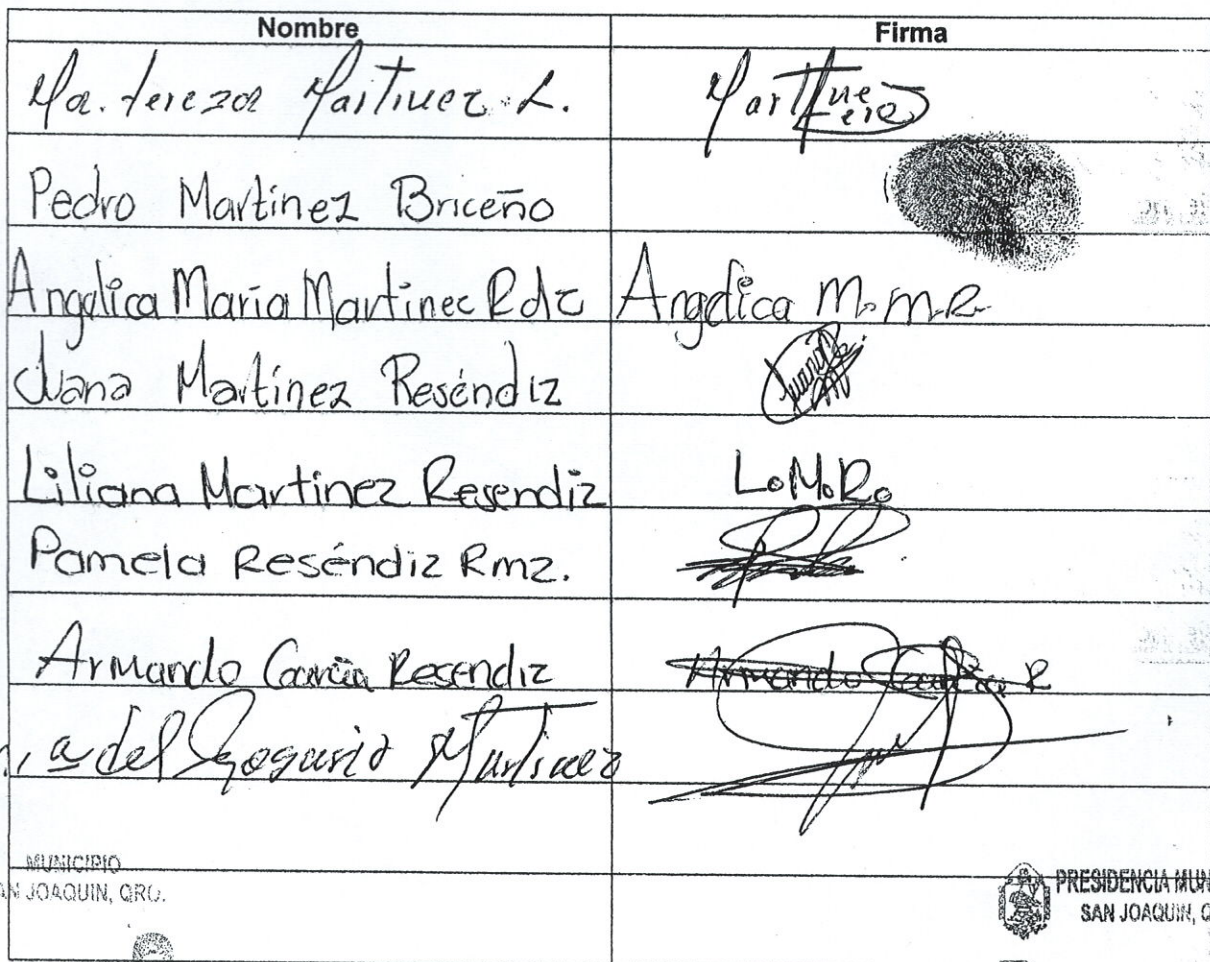 Nombre Firma
Ma. tereza Martinez L.
Pedro Martínez Briceño
Angelica María Martinec Rdz Angelica M.M.R.
Juana Martínez Reséndiz Juanita
Liliana Martinez Resendiz L.M.R.
Pamela Reséndiz Rmz.
Armando García Resendiz Armando García R
a del Rosario Martinez
MUNICIPIO
AN JOAQUIN, QRO.
PRESIDENCIA MUN
SAN JOAQUIN, Q